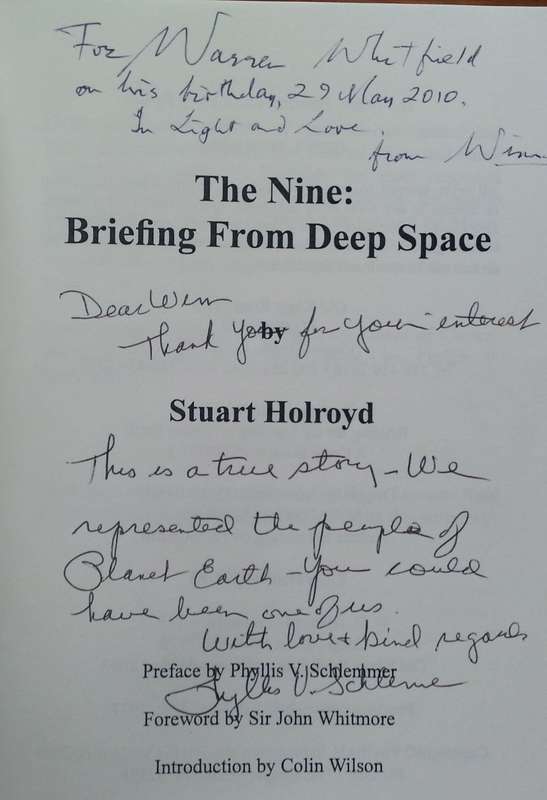 For Warren Whitfield
on his birthday, 29 May 2010.
In Light and Love.
from Winn
The Nine:
Briefing From Deep Space
Dear Winn
Thank You for your interest
by
Stuart Holroyd
This is a true story - We
represented the people of
Planet Earth - You could
have been one of us.
With love + kind regards
Preface by Phyllis V. Schlemmer
Phyllis V. Schlemmer
Foreword by Sir John Whitmore
Introduction by Colin Wilson